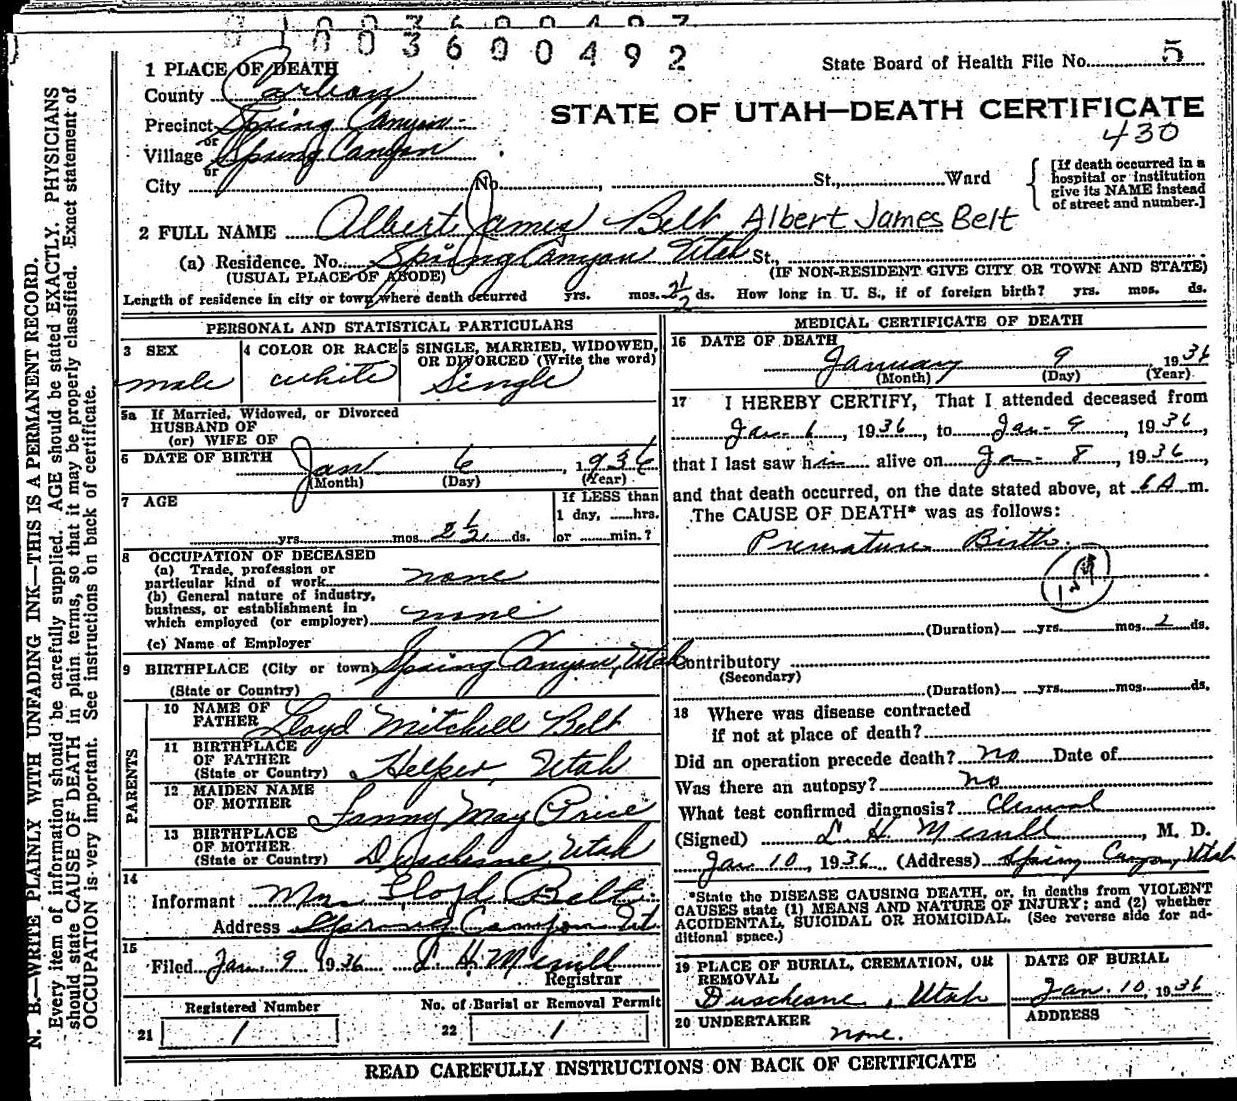 0 1 0 0 3 6 0 0 4 9 2
State Board of Health File No. 5
STATE OF UTAH—DEATH CERTIFICATE
430
1 PLACE OF DEATH
County Carbon
Precinct Spring Canyon
or
Village Spring Canyon
or
City No. , St., Ward
[If death occurred in a
hospital or institution
give its NAME instead
of street and number.]
2 FULL NAME Albert James Belt Albert James Belt
(a) Residence. No. Spring Canyon Utah St.,
(USUAL PLACE OF ABODE) (IF NON-RESIDENT GIVE CITY OR TOWN AND STATE)
Length of residence in city or town where death occurred yrs. mos. 2 1/2 ds. How long in U. S., if of foreign birth? yrs. mos. ds.
PERSONAL AND STATISTICAL PARTICULARS
3 SEX
male
4 COLOR OR RACE
white
5 SINGLE, MARRIED, WIDOWED,
OR DIVORCED (Write the word)
Single
5a If Married, Widowed, or Divorced
HUSBAND OF
(or) WIFE OF
6 DATE OF BIRTH Jan 6, 1936
(Month) (Day) (Year)
7 AGE
yrs. mos. 2 1/2 ds.
If LESS than
1 day, hrs.
or min.?
8 OCCUPATION OF DECEASED
(a) Trade, profession or
particular kind of work none
(b) General nature of industry,
business, or establishment in
which employed (or employer) none
(c) Name of Employer
9 BIRTHPLACE (City or town) Spring Canyon, Utah
(State or Country)
PARENTS
10 NAME OF
FATHER Lloyd Mitchell Belt
11 BIRTHPLACE
OF FATHER
(State or Country) Helper, Utah
12 MAIDEN NAME
OF MOTHER Fanny May Price
13 BIRTHPLACE
OF MOTHER
(State or Country) Duschesne, Utah
14
Informant Mrs Lloyd Belt
Address Spring Canyon Ut.
15
Filed Jan. 9 1936 L H Merrill
Registrar
Registered Number
21 1
No. of Burial or Removal Permit
22 1
MEDICAL CERTIFICATE OF DEATH
16 DATE OF DEATH
January 9 1936
(Month) (Day) (Year)
17 I HEREBY CERTIFY, That I attended deceased from
Jan-6, 1936, to Jan-9, 1936,
that I last saw him alive on Jan-8, 1936,
and that death occurred, on the date stated above, at 6 A m.
The CAUSE OF DEATH* was as follows:
Premature Birth.
159
(Duration) yrs. mos. 2 ds.
Contributory
(Secondary)
(Duration) yrs. mos. ds.
18 Where was disease contracted
if not at place of death?
Did an operation precede death? no Date of
Was there an autopsy? no
What test confirmed diagnosis? Clinical
(Signed) L H Merrill, M. D.
Jan 10, 1936 (Address) Spring Canyon, Utah
*State the DISEASE CAUSING DEATH, or, in deaths from VIOLENT
CAUSES state (1) MEANS AND NATURE OF INJURY; and (2) whether
ACCIDENTAL, SUICIDAL OR HOMICIDAL. (See reverse side for ad-
ditional space.)
19 PLACE OF BURIAL, CREMATION, OR
REMOVAL
Duschesne, Utah
DATE OF BURIAL
Jan. 10, 1936
20 UNDERTAKER
none.
ADDRESS
READ CAREFULLY INSTRUCTIONS ON BACK OF CERTIFICATE
N. B.—WRITE PLAINLY WITH UNFADING INK—THIS IS A PERMANENT RECORD.
Every item of information should be carefully supplied. AGE should be stated EXACTLY. PHYSICIANS
should state CAUSE OF DEATH in plain terms, so that it may be properly classified. Exact statement of
OCCUPATION is very important. See instructions on back of certificate.